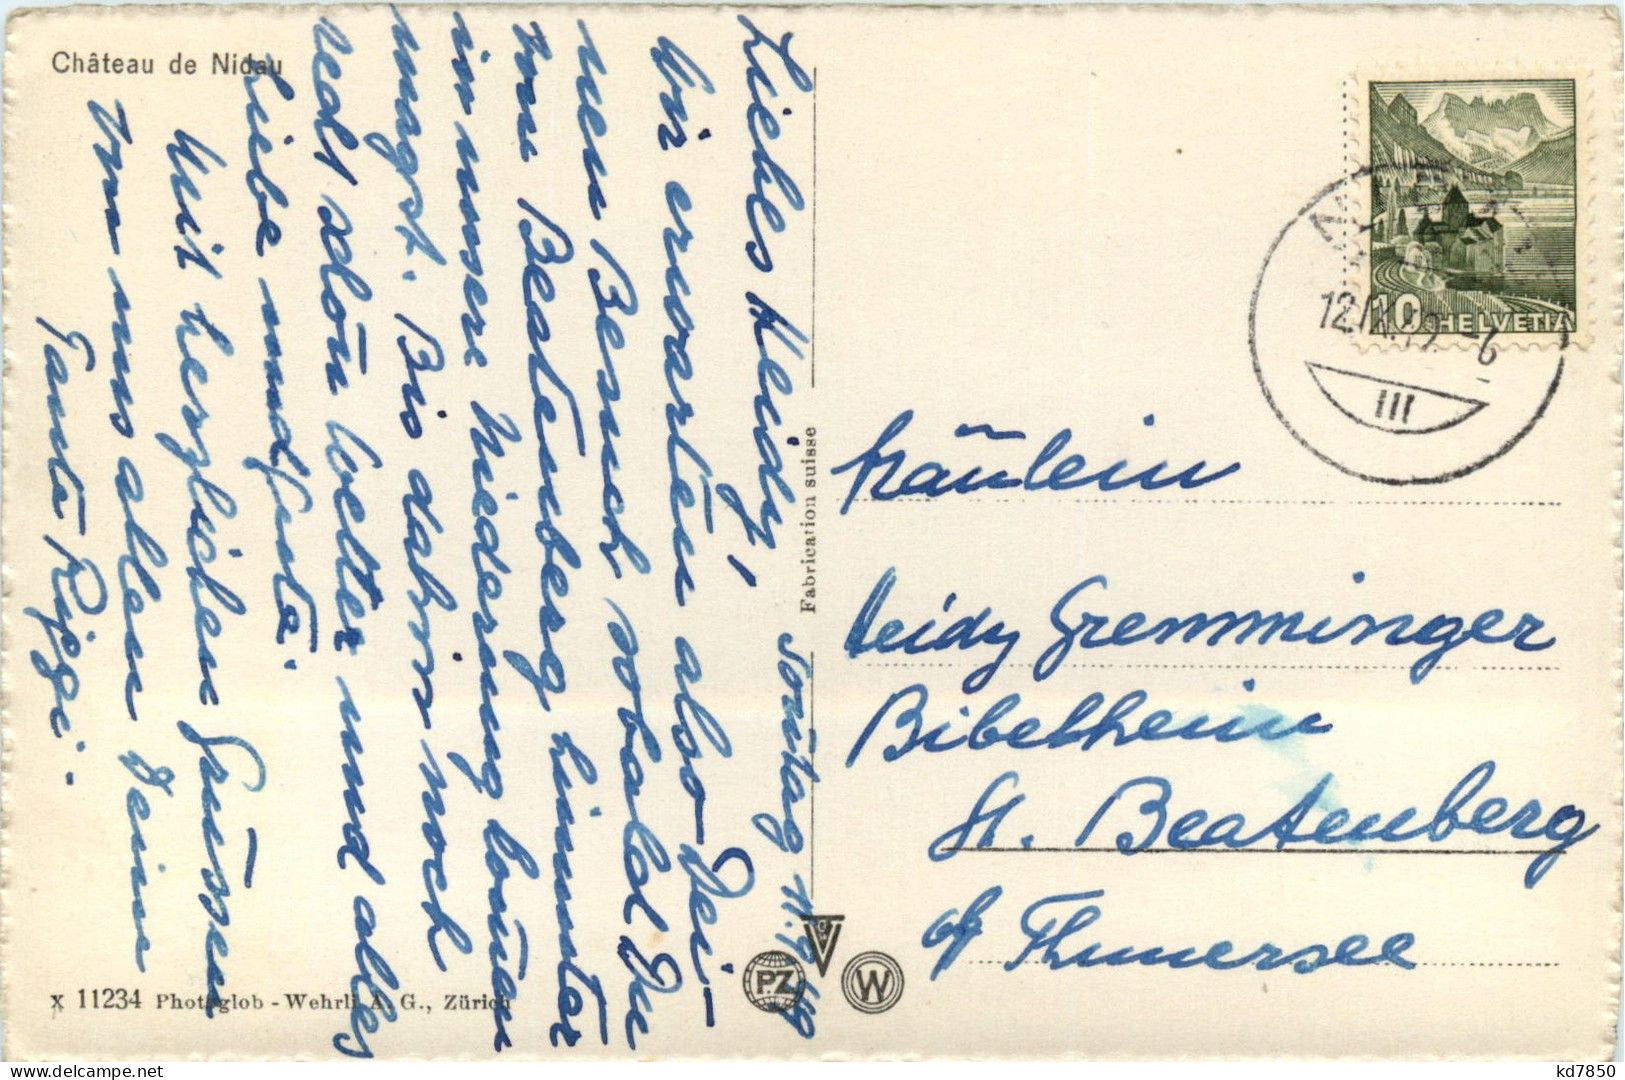 Château de Nidau
Sonntag 11.9.49
Liebes Heidy!
Wir erwarten also Dei-
nen Besuch sobald Du
von Beatenberg hinunter
in unsere Niederung kommen
magst. Bis dahin noch
recht schön Wetter und alles
Liebe und Gute.
Mit herzlichen Grüssen
von uns allen Deine
Tante
Fabrication suisse
PZ
W
x 11234 Photoglob - Wehrli A. G., Zürich
10 HELVETIA
III
Fräulein
Heidy Gremminger
Bibelheim
St. Beatenberg
o/ Thunersee
kd7850